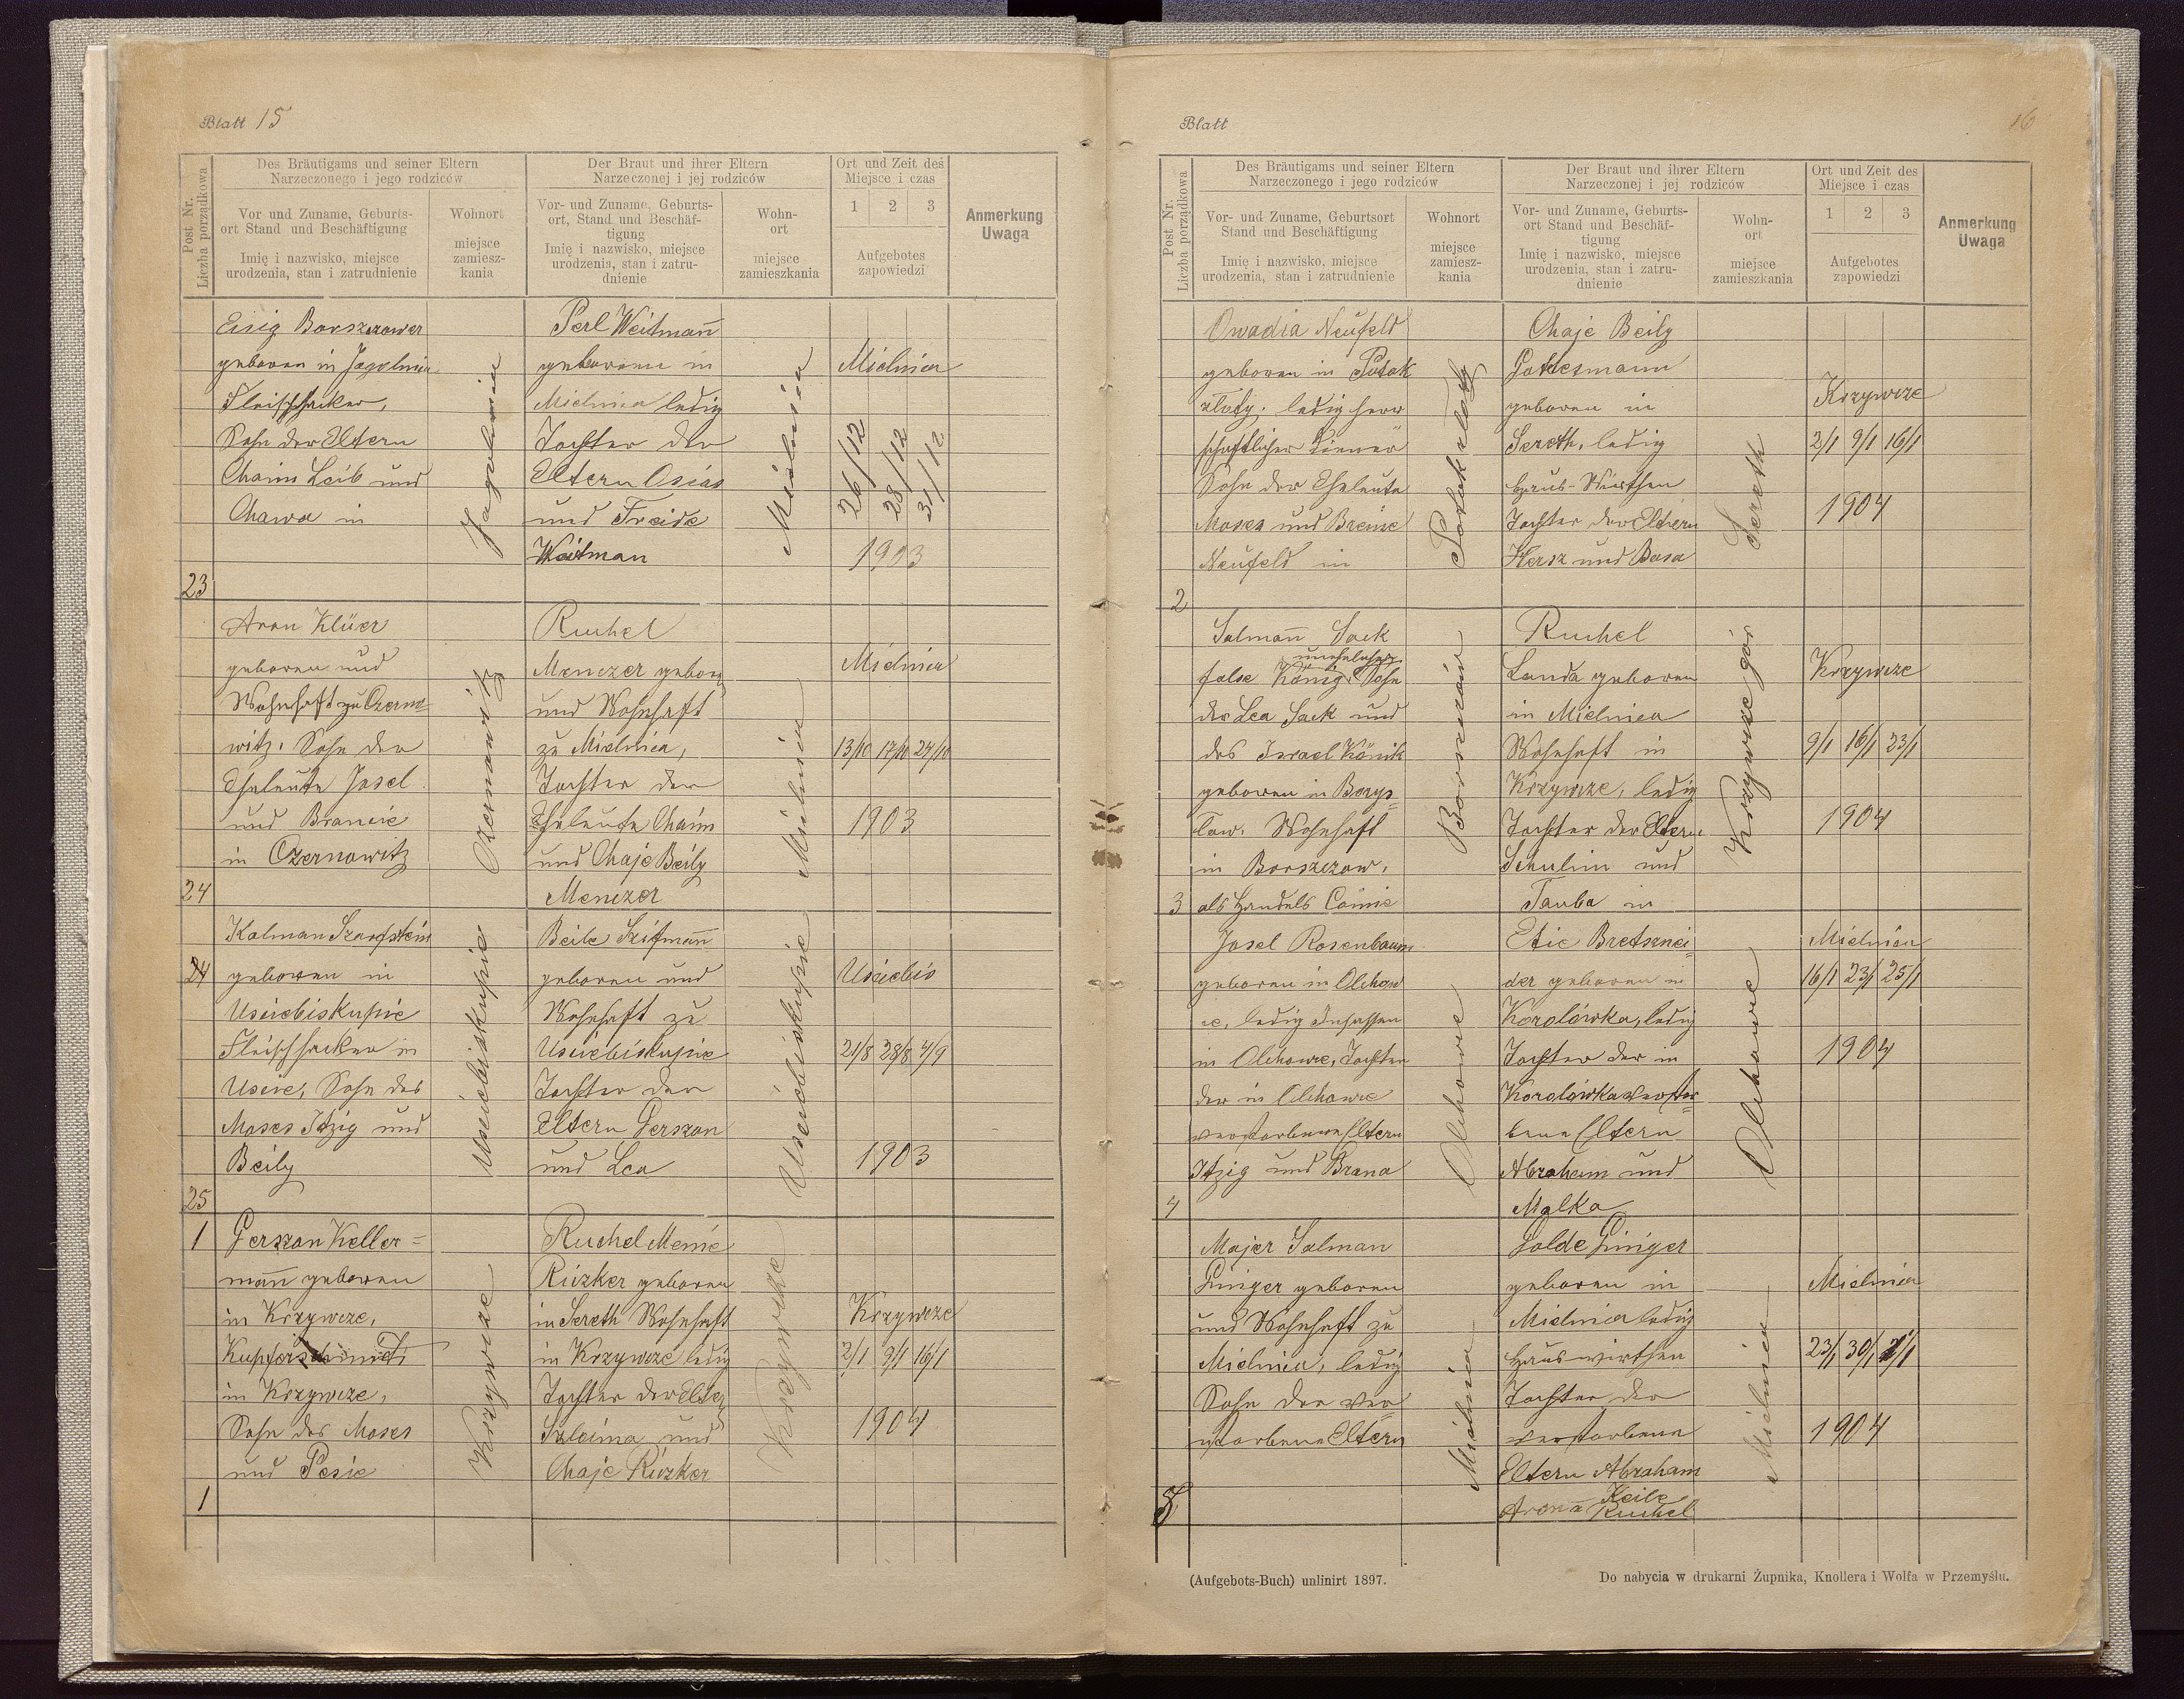 Blatt 15
Post Nr.
Liczba porządkowa
Des Bräutigams und seiner Eltern
Narzeczonego i jego rodziców
Vor und Zuname, Geburts-
ort Stand und Beschäftigung
Imię i nazwisko, miejsce
urodzenia, stan i zatrudnienie
Wohnort
miejsce
zamiesz-
kania
Der Braut und ihrer Eltern
Narzeczonej i jej rodziców
Vor- und Zuname, Geburts-
ort, Stand und Beschäf-
tigung
Imię i nazwisko, miejsce
urodzenia, stan i zatru-
dnienie
Wohn-
ort
miejsce
zamieszkania
Ort und Zeit des
Miejsce i czas
1 2 3
Aufgebotes
zapowiedzi
Anmerkung
Uwaga
23
Eisig Borszczower
geboren in Jagolnica
Fleischhacker,
Sohn der Eltern
Chaim Leib und
Chawa in
Jagielnica
Perl Weitmann
geborenen in
Mielnica ledig
Tochter der
Eltern Osias
und Freide
Weitman
Mielnica
Mielnica
26/12 28/12 31/12
1903
24
Aron Klüer
geboren und
Wohnhaft zu Czerno
witz. Sohn der
Eheleute Josel
und Brancie
in Czernowitz
Czernowitz
Ruchel
Menczer geboren
und Wohnhaft
zu Mielnica,
Tochter der
Eheleute Chaim
und Chaje Beily
Menczer
Mielnica
Mielnica
13/10 17/10 24/10
1903
24
25
Kalman Szarfstein
geboren in
Usciebiskupie
Fleischhacker in
Uscie, Sohn des
Moses Itzig und
Beily
Usciebiskupie
Beile Szifmann
geboren und
Wohnhaft zu
Usciebiskupie
Tochter der
Eltern Gerszon
und Lea
Usciebiskupie
Usciebis
21/8 28/8 4/9
1903
1
Gerszon Keller=
mann geboren
in Krzywcze,
Kupferschmidt
in Krzywcze,
Sohn des Moses
und Pesie
1
Krzywcze
Ruchel Menie
Riczker geboren
in Sereth Wohnhaft
in Krzywcze ledig
Tochter der Elter
Szloima und
Chaje Riczker
Krzywcze
Krzywcze
2/1 9/1 16/1
1904
Blatt
16
Post Nr.
Liczba porządkowa
Des Bräutigams und seiner Eltern
Narzeczonego i jego rodziców
Vor- und Zuname, Geburtsort
Stand und Beschäftigung
Imię i nazwisko, miejsce
urodzenia, stan i zatrudnienie
Wohnort
miejsce
zamiesz-
kania
Der Braut und ihrer Eltern
Narzeczonej i jej rodziców
Vor- und Zuname, Geburts-
ort Stand und Beschäf-
tigung
Imię i nazwisko, miejsce
urodzenia, stan i zatru-
dnienie
Wohn-
ort
miejsce
zamieszkania
Ort und Zeit des
Miejsce i czas
1 2 3
Aufgebotes
zapowiedzi
Anmerkung
Uwaga
2
Owadia Neufeld
geboren in Potok
zloty. ledig herr
schaftlicher Diener
Sohn der Eheleute
Moses und Breine
Neufeld in
Potok zloty
Chaje Beily
Gottesmann
geboren in
Sereth, ledig
Haus-Wirthin
Tochter der Eltern
Hersz und Basa
Sereth
Krzywcze
2/1 9/1 16/1
1904
3
Salmann Sack
unehelicher
false König. Sohn
der Lea Sack und
des Israel Könik
geboren in Borys=
law. Wohnhaft
in Borszczow,
als Handels Comie
Borszczów
Ruchel
Landa geboren
in Mielnica
Wohnhaft in
Krzywcze, ledig
Tochter der Eltern
Schulim und
Tauba in
Krzywcze gór
Krzywcze
9/1 16/1 23/1
1904
4
Josel Rosenbaum
geboren in Olchow
ie, ledig Insassen
in Olchowce, Tochter
der in Olchowce
verstorbenen Eltern
Itzig und Brana
Olchowce
Etie Bretsznei
der geboren in
Korolówka, ledig
Tochter der in
Korolówka verstor=
bene Eltern
Abraham und
Malka
Olchowce
Mielnica
16/1 23/1 25/1
1904
5
Majer Salman
Giniger geboren
und Wohnhaft zu
Mielnica, ledig
Sohn der ver=
storbene Eltern
Mielnica
Golde Giniger
geboren in
Mielnica ledig
Hauswirthin
Tochter der
verstorbene
Eltern Abraham
Keile
Arona Ruchel
Mielnica
Mielnica
23/1 30/1
1904
(Aufgebots-Buch) unlinirt 1897.
Do nabycia w drukarni Żupnika, Knollera i Wolfa w Przemyślu.